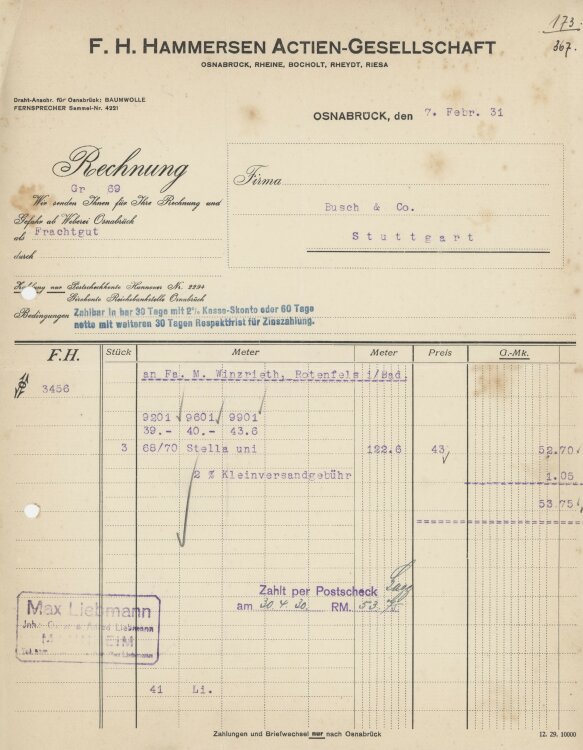 173.
367.
F. H. HAMMERSEN ACTIEN-GESELLSCHAFT
OSNABRÜCK, RHEINE, BOCHOLT, RHEYDT, RIESA
Draht-Anschr. für Osnabrück: BAUMWOLLE
FERNSPRECHER Sammel-Nr. 4221
OSNABRÜCK, den 7. Febr. 31
Rechnung
Gr 69
Firma
Wir senden Ihnen für Ihre Rechnung und
Busch & Co.
Gefahr ab Weberei Osnabrück
als Frachtgut
Stuttgart
durch
Zahlung nur Postscheckkonto Hannover Nr. 2294
Girokonto Reichsbankstelle Osnabrück
Bedingungen Zahlbar in bar 30 Tage mit 2% Kasse-Skonto oder 60 Tage
netto mit weiteren 30 Tagen Respektfrist für Zinszahlung.
F.H. Stück Meter Meter Preis G.-Mk.
an Fa. M. Winzrieth, Rotenfels i/Bad.
3456
9201 9601 9901
39.- 40.- 43.6
3 68/70 Stella uni 122.6 43 52.70
2 % Kleinversandgebühr 1.05
53.75
Zahlt per Postscheck
am 30.4.30. RM. 53.75
Max Liebmann
MANNHEIM
41 Li.
Zahlungen und Briefwechsel nur nach Osnabrück
12. 29. 10000